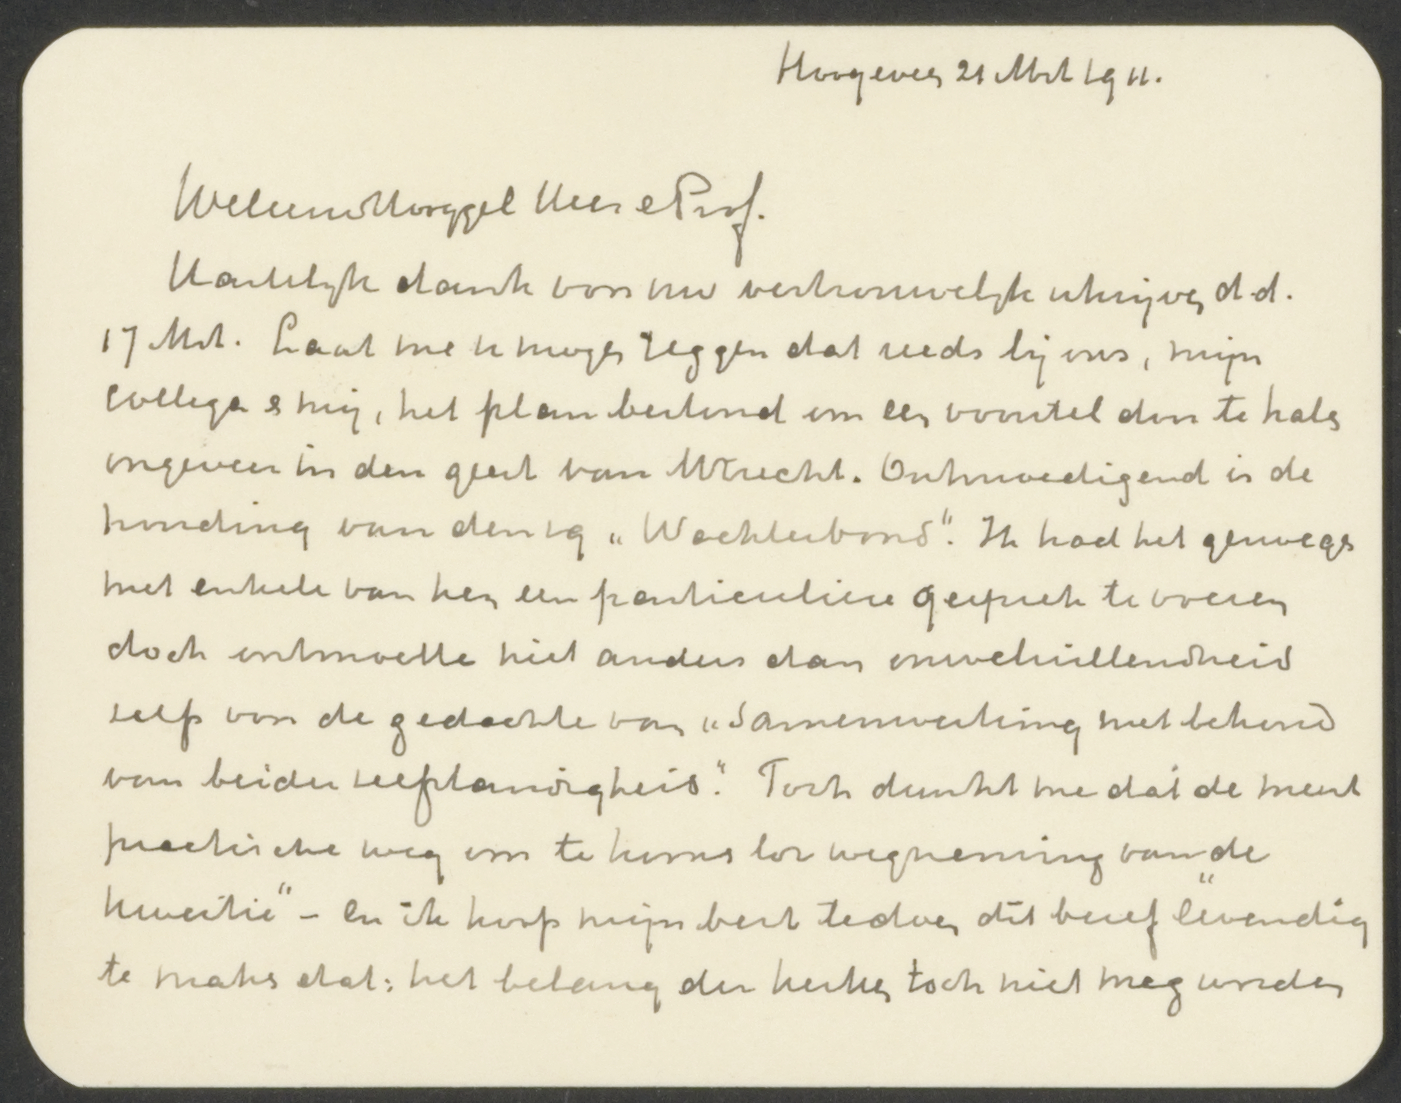 Hoogeveen 21 Mrt 1911.
WelEerwHooggel Heer e Prof.
Hartelijk dank voor uw vertrouwelijk schrijven d.d.
17 Mrt. Laat me u mogen zeggen dat reeds bij ons, mijn
collega & mij, het plan bestond om een voorstel door te halen
ongeveer in den geest van Utrecht. Ontmoedigend is de
houding van den zg „Wachterbond”. Ik had het genoegen
met enkele van hen een particuliere gesprek te voeren
doch ontmoette niet anders dan onwelwillendheid
zelfs voor de gedachte van „samenwerking met behoud
van beider zelfstandigheid”. Toch dunkt me dat de meest
practische weg om te komen tot wegneming van de
kwestie” – en ik hoop mijn best te doen dit besef levendig
te maken dat: het belang der kerken toch niet mag worden